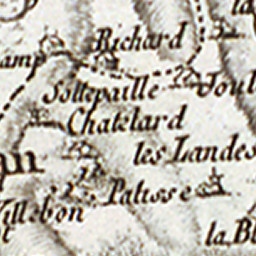 la
Richard
amp
Sottepaille
Joul
Chatelard
les Landes
un
Patisse
Villebon
la Bl